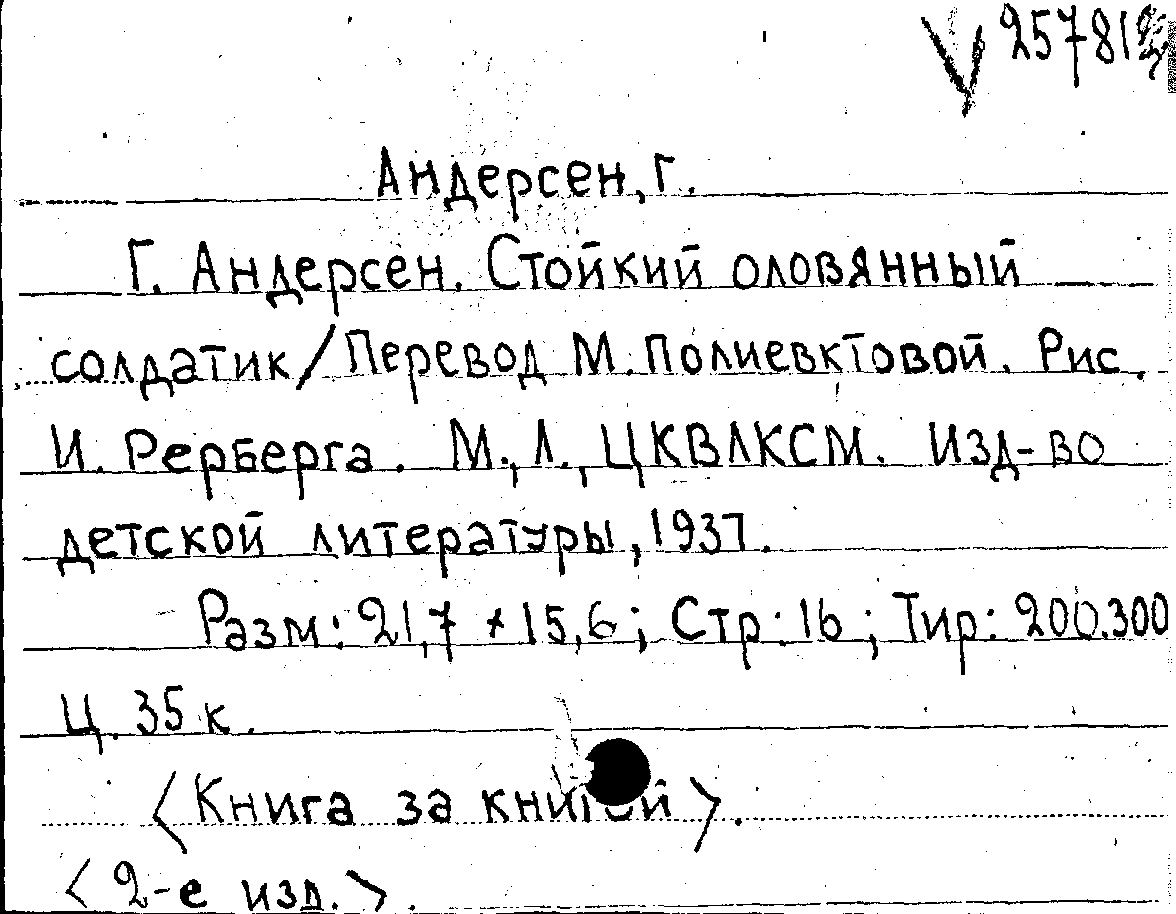 Андерсен, Г.
Г. Андерсен. Стойкий оловянный
солдатик/Перевод М. Полиевктовой. Рис.
И. Рерберга. М., Л., ЦКВЛКСМ. Изд-во
детской литературы, 1937.
Разм: 21,7 × 15,6; Стр: 16; Тир: 200.300
Ц. 35 к.
<Книга за книгой>.
<2-е изд.>.